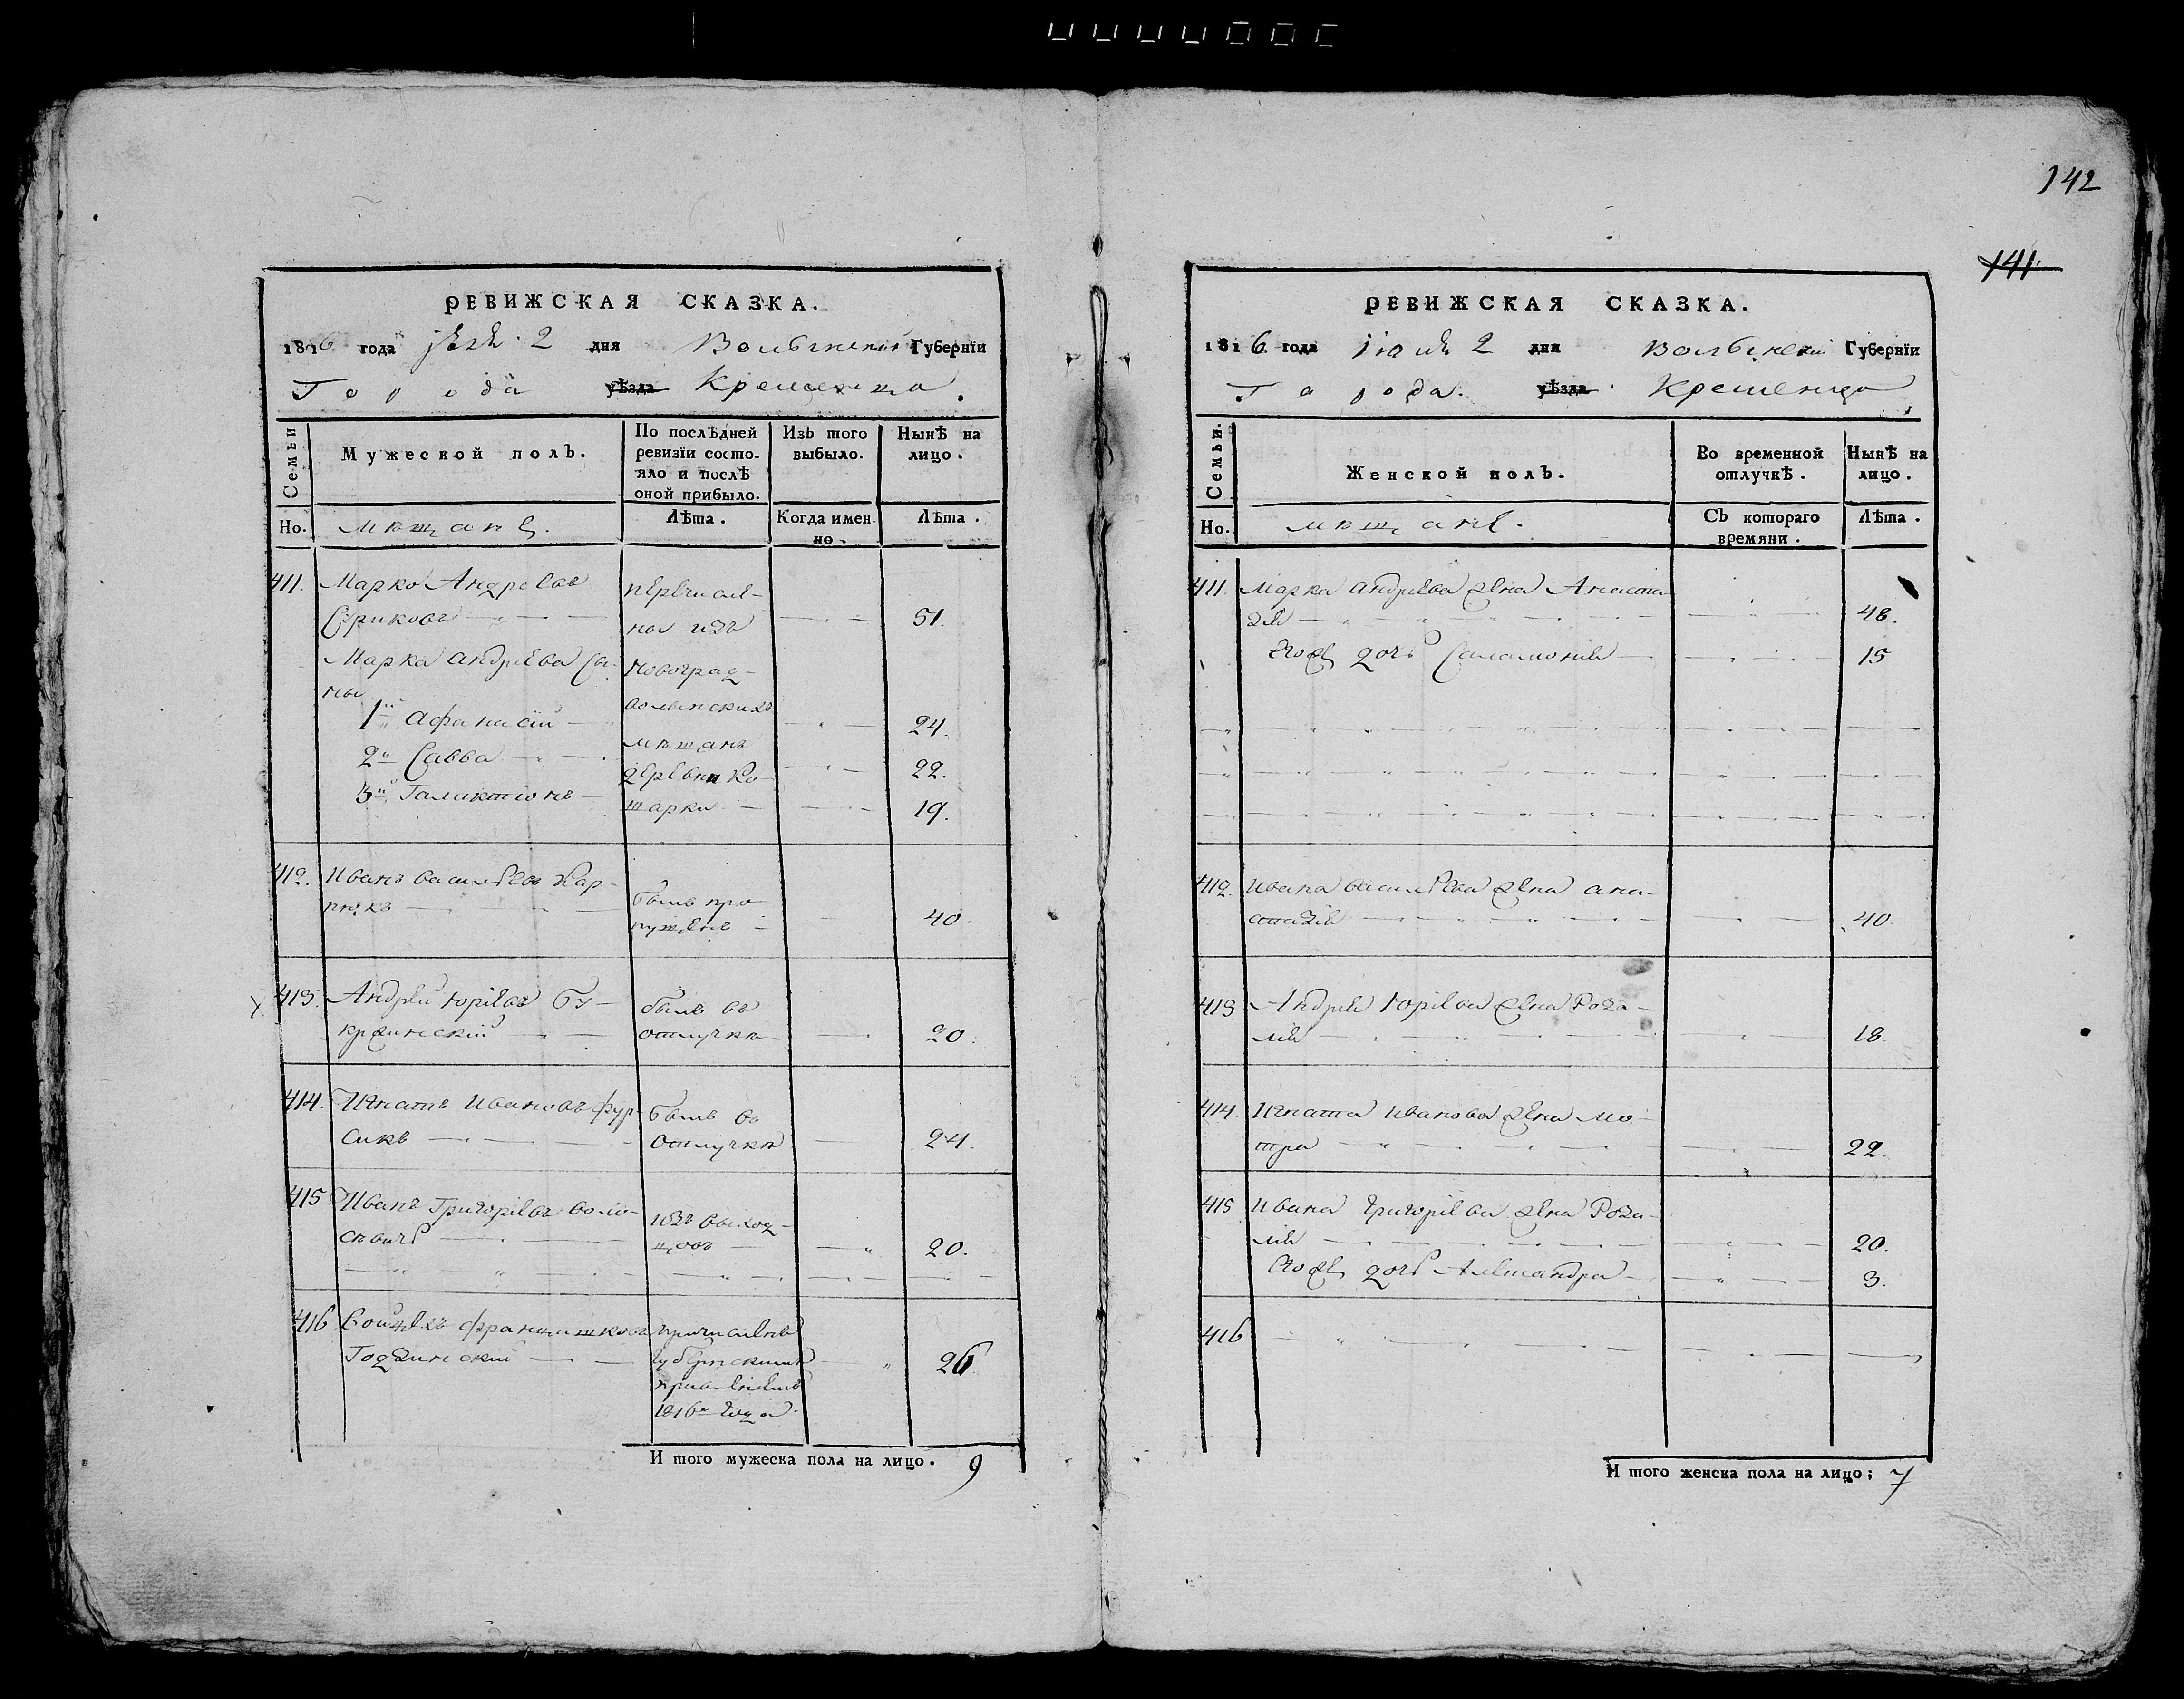 142
141.
РЕВИЖСКАЯ СКАЗКА.
1816 года 2 дня Волынской Губернїи
Города уѣзда Кременца.
Семьи
Мужеской полъ.
По послѣдней
ревизїи состо-
яло и послѣ
оной прибыло.
Изъ того
выбыло.
Нынѣ на
лицо.
Но.
мѣщане.
Лѣта.
Когда имен-
но.
Лѣта.
411. Марко Андреевъ
перечисле-
ны изъ
51.
Марка андреева сы-
ны
Новоград-
волынскихъ
1й Афанасiй
24.
мѣщанъ
2й Савва
деревни Ко-
22.
3й Галактiонъ
шарки
19.
412. Иванъ васильевъ Кар-
пюкъ
былъ про-
пущенъ
40.
413. Андрей юрiевъ Бу-
былъ въ
отлучкѣ
20.
414. Игнатъ Ивановъ фур-
сикъ
былъ въ
отлучкѣ
24.
415. Иванъ Григорiевъ
изъ выход-
цовъ
20.
416 Войцехъ францишковъ
Годзинскiй
причисленъ
губернскимъ
правленiемъ
1816го года
26
И того мужеска пола на лицо. 9
РЕВИЖСКАЯ СКАЗКА.
1816 года iюля 2 дня волынской Губернїи
Города уѣзда Кременца
Семьи.
Женской полъ.
Во временной
отлучкѣ.
Нынѣ на
лицо.
Но.
мѣщане.
Съ котораго
времяни.
Лѣта.
411. Марка андреева жена Анаста-
зiя
48.
Егожъ дочь Саламонiя
15
412. Ивана васильева жена ана-
стазiя
40.
413 Андрея юрiева жена Роза-
лiя
18.
414. Игната иванова жена мо-
тра
22.
415 Ивана григорiева жена Роза-
лiя
20.
Егожъ дочь Александра
3.
416
И того женска пола на лицо; 7